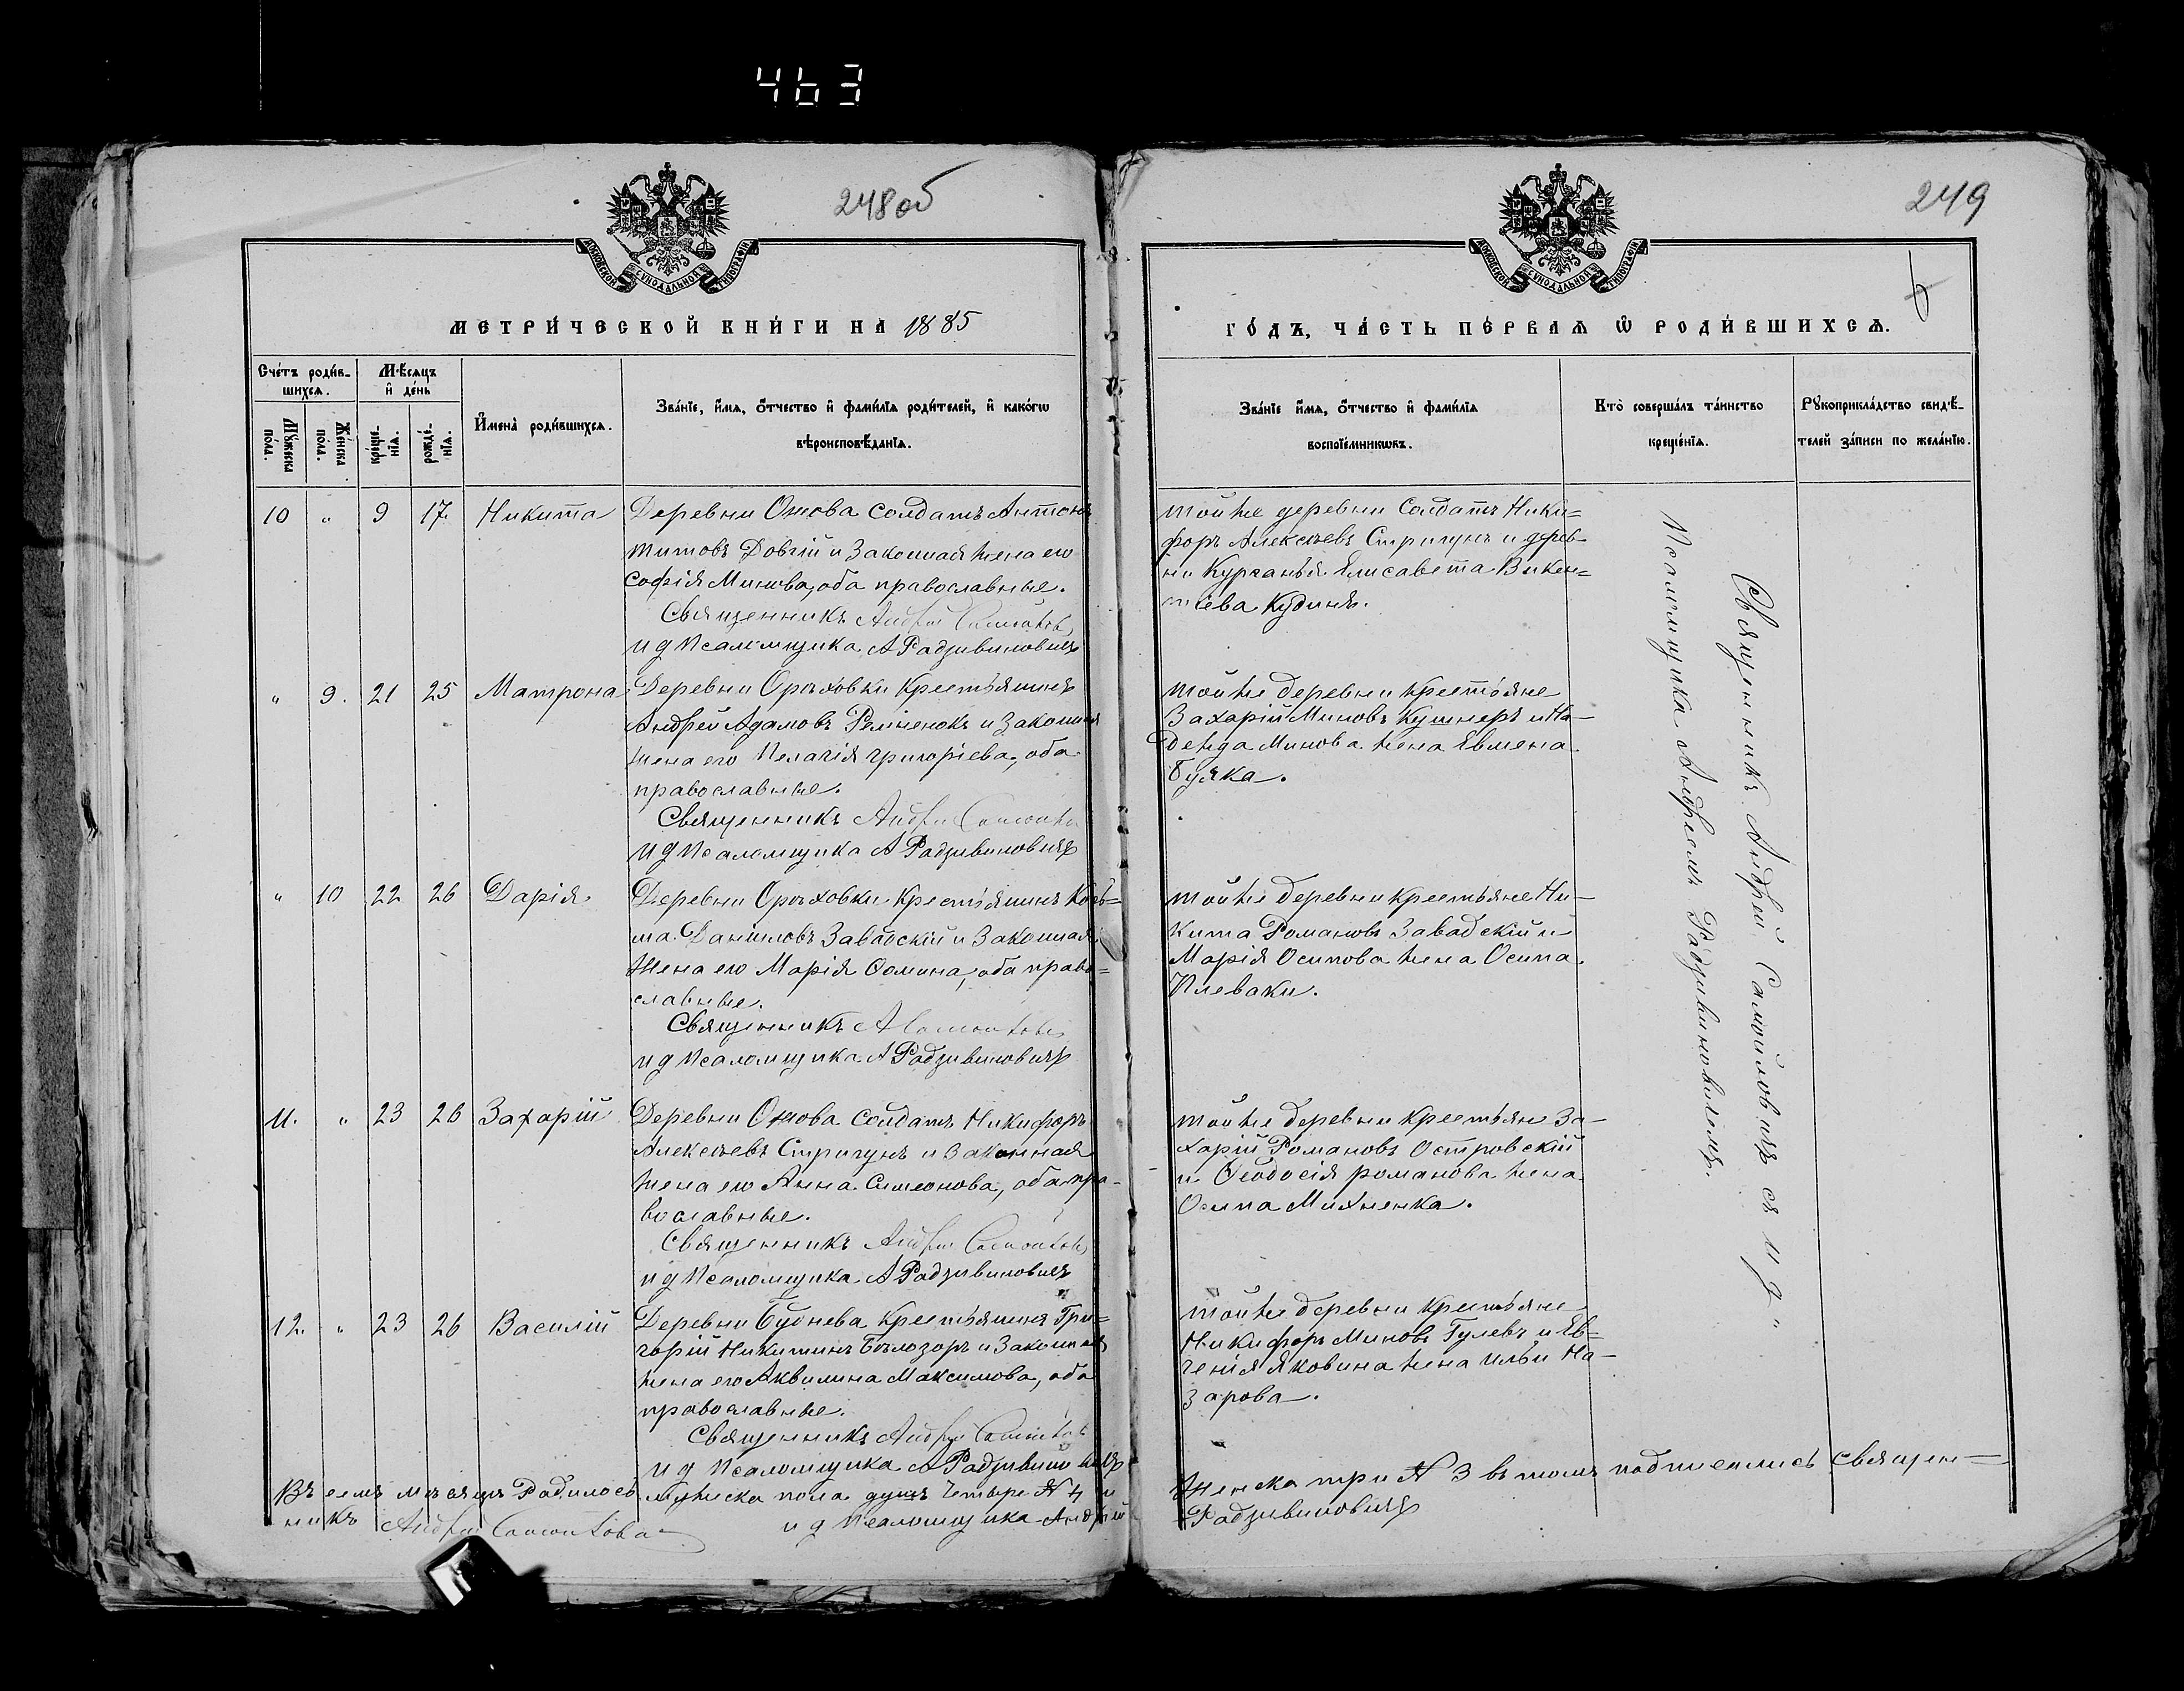 463
248 об
249
МОСКОВСКОЙ СѴНОДАЛЬНОЙ ТИПОГРАФІИ
МОСКОВСКОЙ СѴНОДАЛЬНОЙ ТИПОГРАФІИ
МЕТРИ́ЧЕСКОЙ КНИ́ГИ НА 1885
ГО́ДЪ, ЧА́СТЬ ПЕ́РВАѦ Ѿ РОДИ́ВШИХСѦ.
Счéтъ роди́в-
шихсѧ.
Мѣ́сѧцъ
и҆ дéнь
Мꙋ́жеска пóла.
Жéнска пóла.
крещé-
нїѧ.
рождé-
нїѧ.
И҆менà роди́вшихсѧ.
Звáнїе, и҆́мѧ, ѻ҆́тчество и҆ фами́лїѧ роди́телей, и҆ какóгѡ
вѣроисповѣ́данїѧ.
Звáнїе и҆́мѧ, ѻ҆́тчество и҆ фами́лїѧ
воспрїéмникѡвъ.
Ктò совершáлъ тáинство
крещéнїѧ.
Рꙋкоприклáдство свидѣ́-
телей зáписи по желáнїю.
10 " 9 17. Никита
Деревни Ожова Солдатъ Антонъ
Титовъ Довгій и законная жена его
Софія Минова, оба православные.
Священникъ Андрей
и д Псаломщика А Радзивиновичъ
той же деревни Солдатъ Ники=
форъ Алексѣевъ Стригунъ и дерев-
ни Курганья Елисавета Викен=
тіева Кудинъ.
" 9. 21 25 Матрона
Деревни Орѣховки Крестьянинъ
Андрей Адамовъ и законная
жена его Пелагія Григоріева, оба
православные.
Священникъ Андрей
И Д Псаломщика А Радзивиновичъ
той же деревни крестьяне
Захарій Миновъ Кушнеръ и На-
дежда Минова жена Евмена
Буяка.
" 10 22 26 Дарія
Деревни Орѣховки Крестьянинъ Косъ=
ма Даниловъ Завадскій и законная
жена его Марія Фомина, оба право=
славные.
Священникъ А
и д Псаломщика А Радзивиновичъ
той же деревни крестьяне Ни-
кита Романовъ Завадскій и
Марія Осипова жена Осипа
Плеваки.
11. " 23 26 Захарій
Деревни Ожова Солдатъ Никифоръ
Алексѣевъ Стригунъ и законная
жена его Анна Симеонова, оба пра-
вославные.
Священникъ Андрей
и д Псаломщика А Радзивиновичъ
той же деревни крестьян За-
харій Романовъ Островскій
и Ѳеодосія Романова жена
Осипа Михненка.
12. " 23 26 Василій
Деревни Буднева Крестьянинъ Гри=
горій Никитинъ Бѣлозоръ и законная
жена его Аквилина Максимова, оба
православные.
Священникъ Андрей
и д Псаломщика А Радзивиновичъ
той же деревни крестьяне
Никифоръ Миновъ Гулевъ и Ев=
генія Яковина жена Ильи На-
зарова.
Священникъ Андрей Самойловичъ съ и д
Псаломщика Андреемъ Радзивиновичемъ.
Въ семъ мѣсяцѣ Родилось мужска пола душъ четыре N 4 и женска три N 3 въ томъ подписались Священ=
никъ Андрей и д Псаломщика Андрей Радзивиновичъ